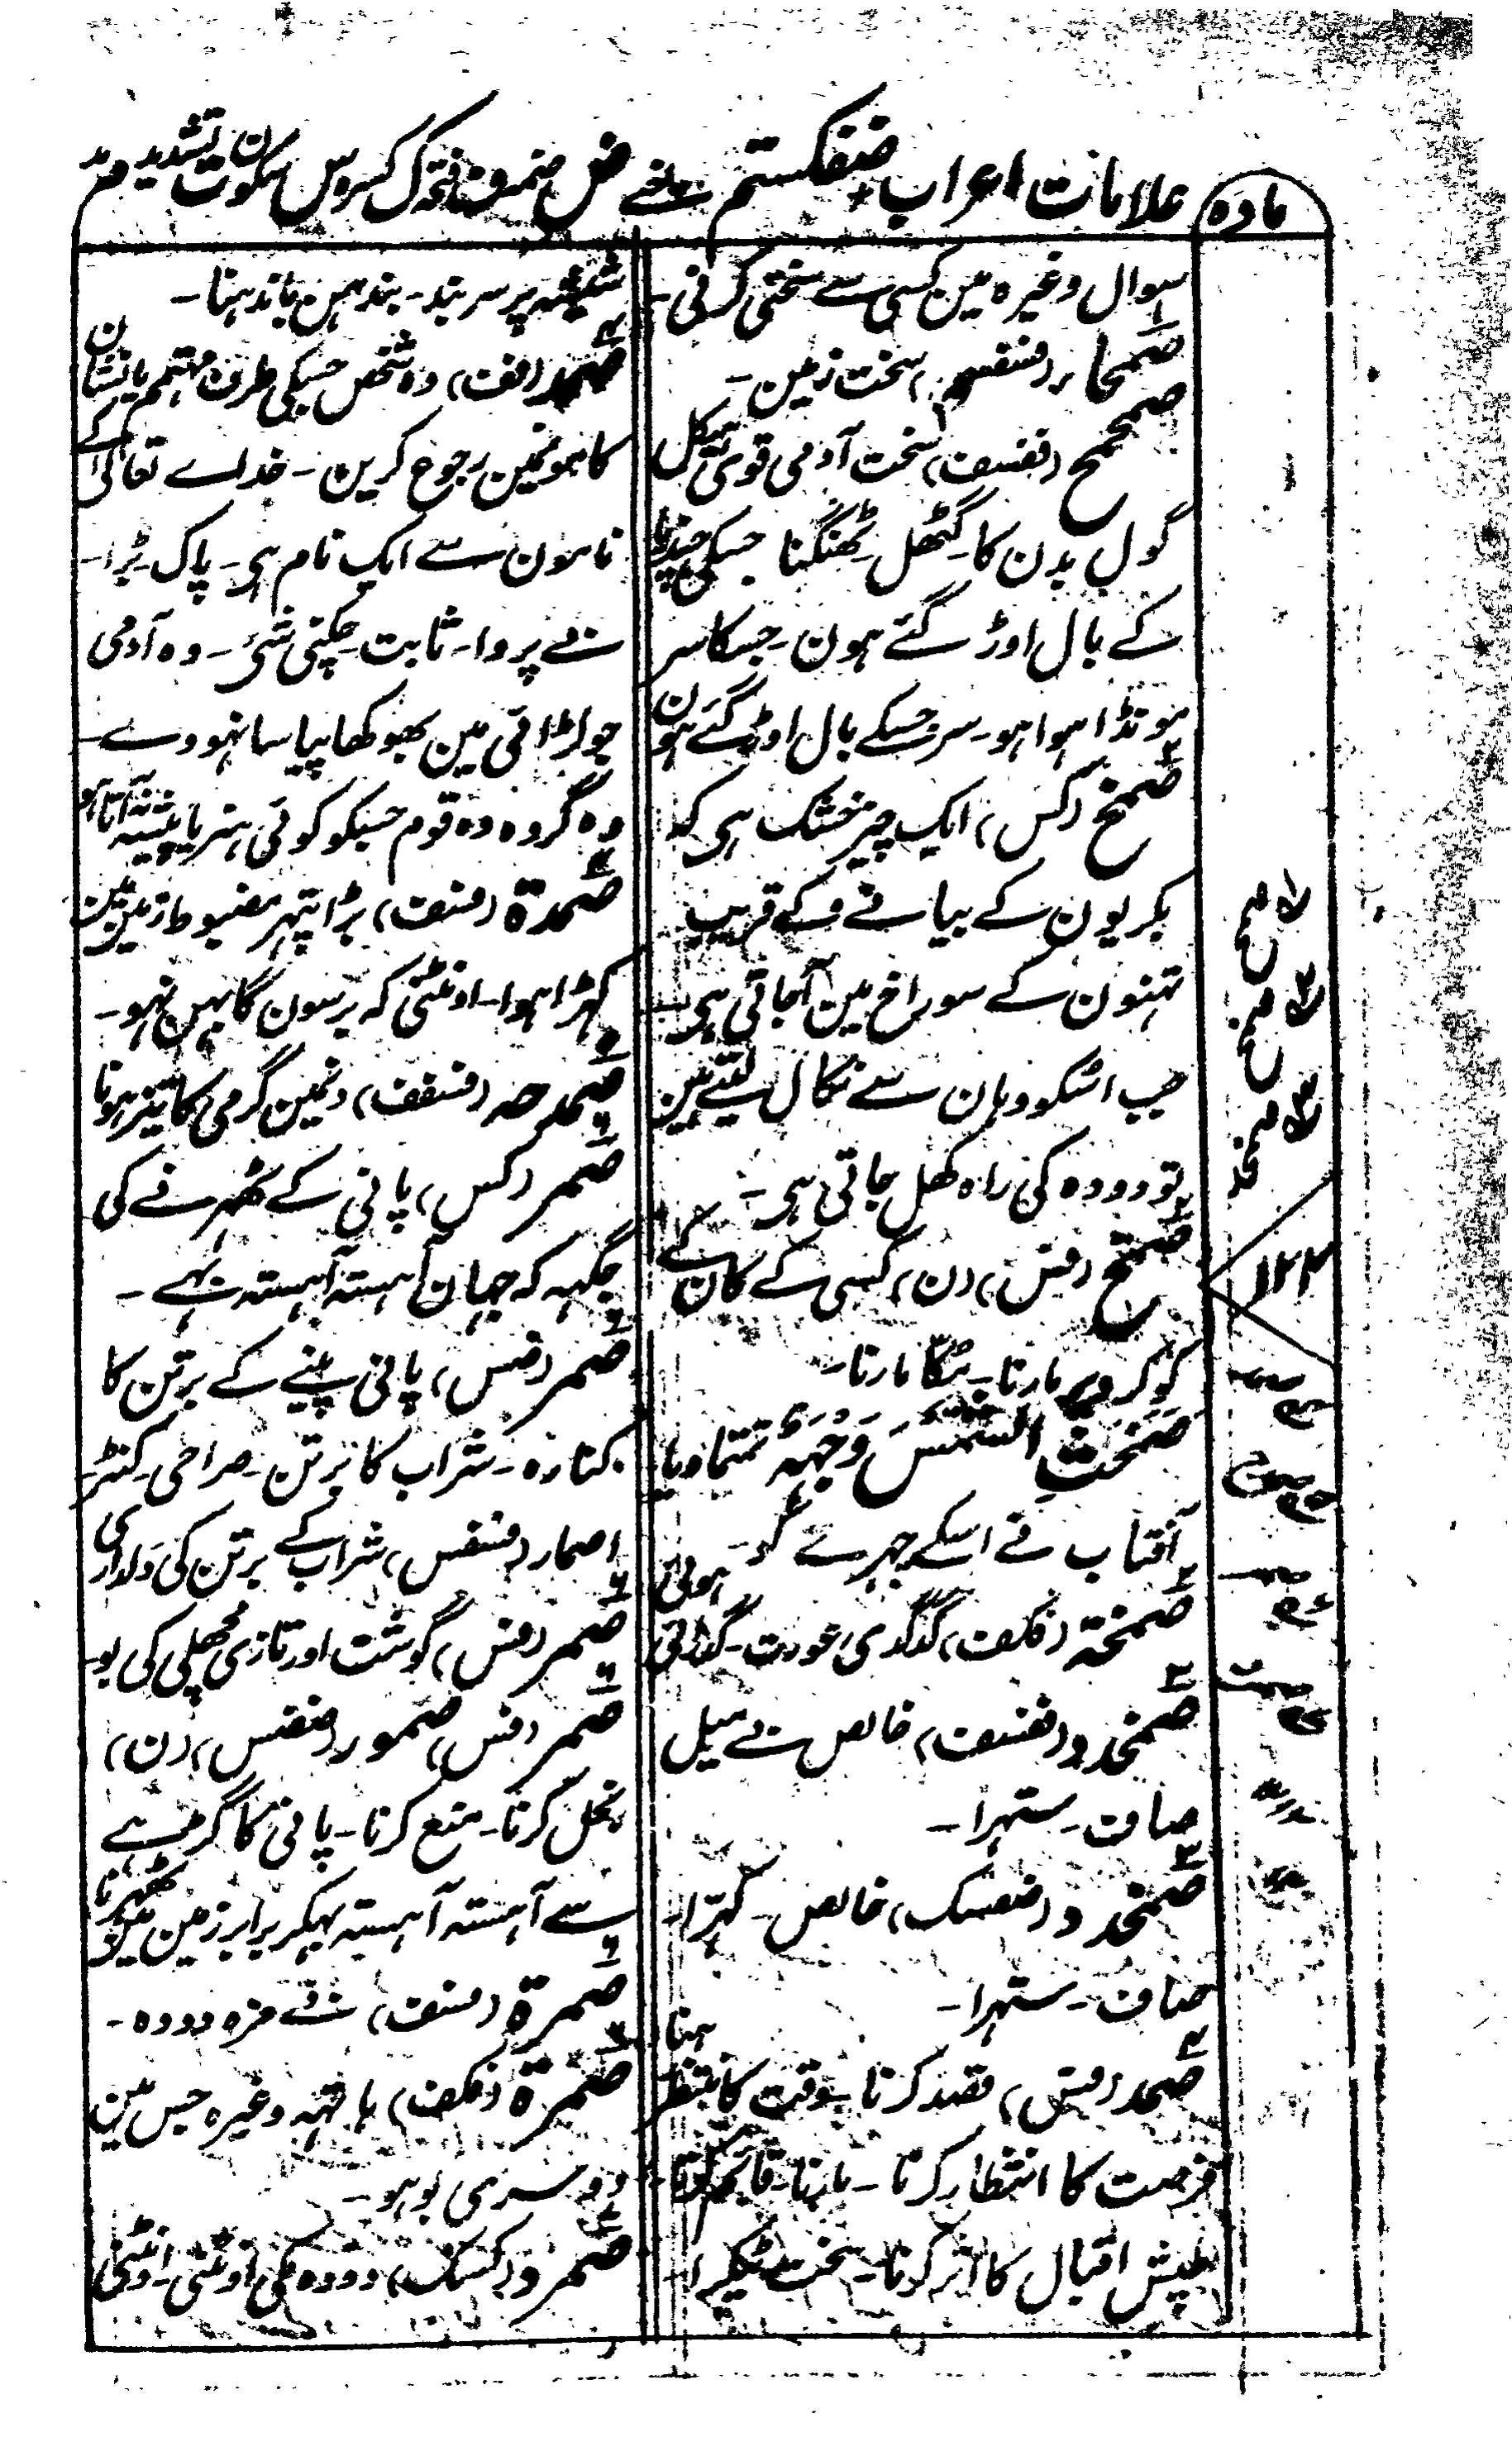 مادہ
علامات اعراب ضفکستم یعنے ض ضمہ ف فتحہ ک کسرہ س سکون ت تشدید م مد
سوال وغیرہ مین کسی سے سختی کرنی۔
صمحاء سخت زمین۔
صمحمح (فففسف) سخت آدمی قوی ہیکل
گول بدن کا۔ گٹھل۔ ٹھنگنا جسکی چندیا
کے بال اوڑ گئے ہون۔ جسکا سر
مونڈا ہوا ہو۔ سر جسکے بال اوڑ گئے ہون
صمخ (کس) ایک چیز خشک ہی کہ
بکریون کے بیانے کے قریب
تہنون کے سوراخ مین آجاتی ہی۔
جب اسکو وہان سے نکال لیتے ہین
تو دودہ کی راہ کھل جاتی ہی۔
صمخ (فس) (ن) کسی کے کان کے
مارنا۔ مکّا مارنا۔
صَمَخَتِ الشَّمْسُ وَجْهَهُ تمتما دیا
آفتاب نے اسکے چہرے کو۔
صمخة (فکف) گدگدی عورت۔ ہوئی
صمخدد خالص بے میل
صاف۔ ستہرا۔
صمخدد خالص۔ کہرا۔
صاف۔ ستہرا۔
صمد (فس) قصد کرنا۔ وقت کا منتظر رہنا
فرصت کا انتظار کرنا۔ مارنا۔
تپش اقبال کا اثر کرنا۔ سخت ٹیکرا۔
شیشہ پر سربند۔ بندہن باندہنا۔
صمد (فف) وہ شخص جسکی طرف مہتم بالشان
کامونمین رجوع کرین۔ خداے تعالٰی کے
نامون سے ایک نام ہی۔ پاک۔ بڑا۔
بے پروا۔ ثابت۔ چکنی شئ۔ وہ آدمی
جو لڑائی مین بھوکھا پیاسا نہووے۔
وہ گروہ وہ قوم جسکو کوئی ہنر یا پیشہ نہ آتا ہو
صمدة (ضسف) بڑا پتہر مضبوط زمین مین
کہڑا ہوا۔ اونٹنی کہ برسون گابہن نہو۔
دنمین گرمی کا تیز ہونا
صمر (کس) پانی کے ٹھہرنے کی
جگہہ کہ جہان آہستہ آہستہ بہے۔
صمر (ضس) پانی پینے کے برتن کا
کنارہ۔ شراب کا برتن۔ صراحی۔ کنٹر۔
اصمار (فسفس) شراب کے برتن کی
صمر (فس) گوشت اور تازی مچھلی کی بو۔
صمر (فس) صمور (ضضس) (ن)
بخل کرنا۔ منع کرنا۔ پانی کا گڑھے
سے آہستہ آہستہ بہکر برابر زمین مین ٹھہرنا
صمرة (فسف) بے مزہ دودہ۔
صمرة (فکف) ہاتھہ وغیرہ جس مین
دوسری بو ہو۔
صمرد (کسک) دودہ کی اونٹنی۔ اونٹنی
۱۲۲